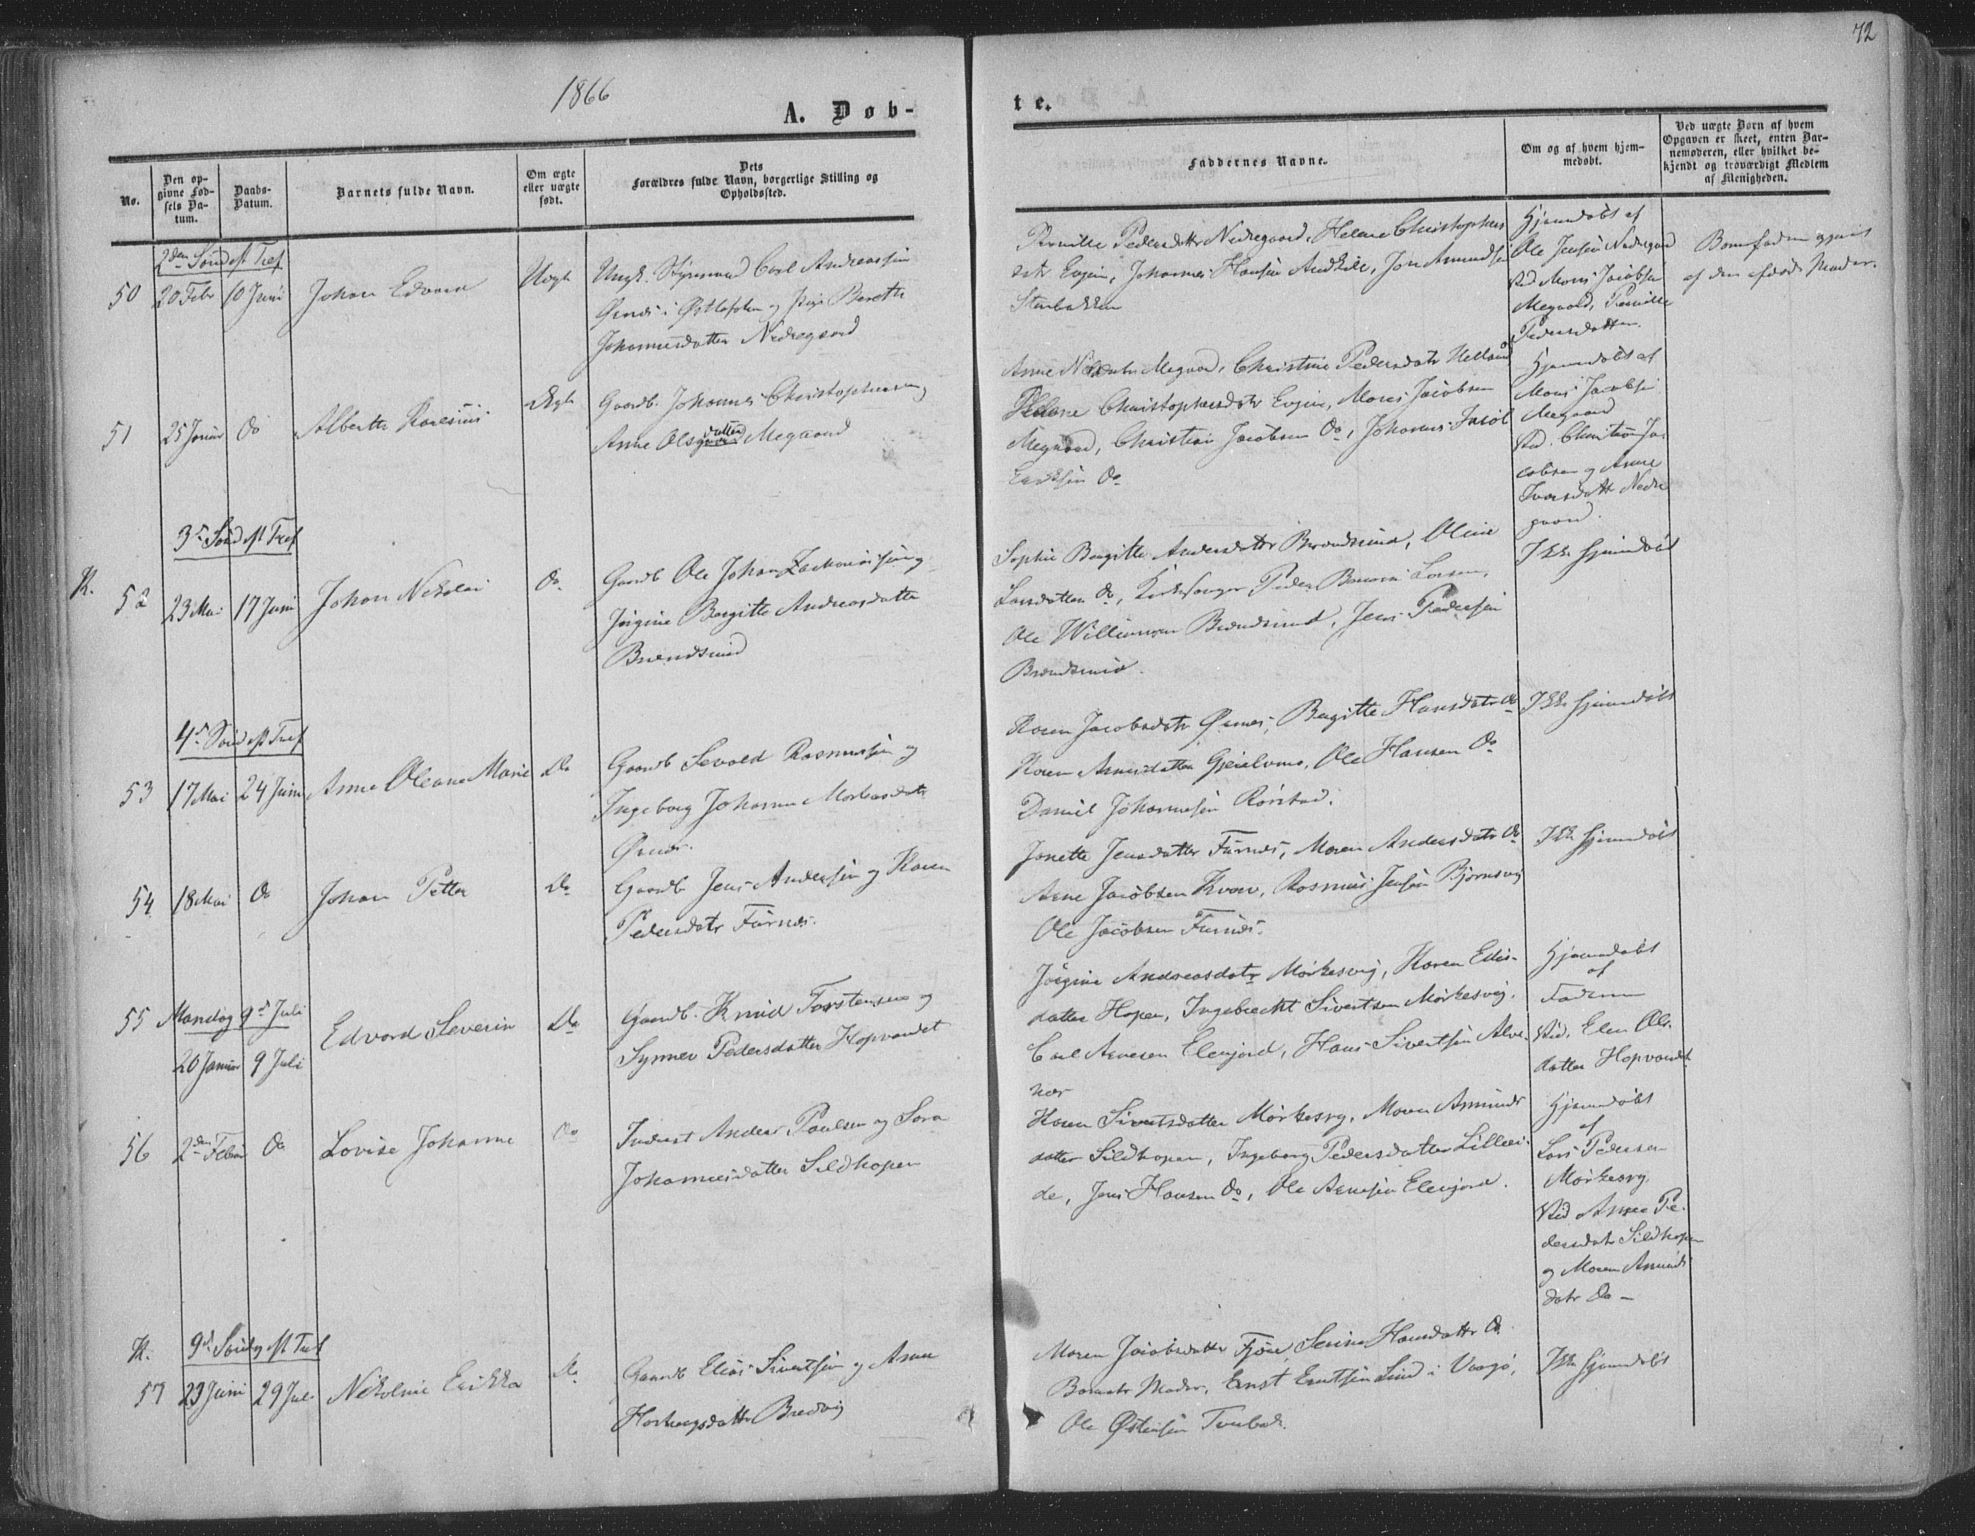 72
1866
A. Døb-
te.
No.
Den op-
givne Fød-
sels Da-
tum.
Daabs-
Datum.
Barnets fulde Navn.
Om ægte
eller uægte
født.
Dets
Forældres fulde Navn, borgerlige Stilling og
Opholdssted.
Faddernes Navne.
Om og af hvem hjem-
medøbt.
Ved uægte Børn af hvem
Opgaven er skeet, enten Bar-
nemoderen, eller hvilket be-
kjendt og troværdigt Medlem
af Menigheden.
2den Sønd eft Tref
50 20 Febr 10 Juni Johan Edvard Uægte
Ungk. Styrmand Carl Andreassen
Ørnes i Østlofoten og pige Berethe
Johannesdatter Nedregaard
Pernille Pedersdatter Nedregaard, Helene Christophers
datr Evjen, Johannes Hansen, Jon Amundsen
Stenbakken
Hjemmdøbt af
Ole Jensen Nedregaard
Ved Mons Jacobsen
Megaard, Pernille
Pedersdatter.
Barnefaderen opgivet
af den Moder.
51 25 Januar Do Albertha Ægte
Gaardb. Johannes Christophersen og
Anne Olsdatter Megaard
Anne Megaard, Christine Pedersdatr
Helene Christophersdatr Evjen, Mons Jacobsen
Megaard, Christian Jacobsen Do, Johannes
Eriksen Do
Hjemmdøbt af
Mons Jacobsen
Megaard
Ved. Christian Ja-
cobsen og Anne
Iversdatr Nedre
gaard.
3d Sønd eft Tref
K. 52 23 Mai 17 Juni Johan Nikolai Do
Gaardb Ole Johan Zachariassen og
Jørgine Bergitte Andreasdatter
Brændsund
Sophie Bergitte Andersdatter Brændsund, Oline
Larsdatter Do, Kirkesanger Peder Larsen,
Ole Williamsen Brændsund, Jens Pedersen
Brændsund.
Ikke hjemmdøbt
4d Sønd eft Tref
53 17 Mai 24 Juni Anne Oleane Marie Do
Gaardb Sevald Rasmussen og
Ingeborg Johanna Mortensdatr
Ørnes.
Karen Jacobsdatr Ørnes, Bergitte Hansdatr Do
Karen Arnesdatter, Ole Hansen Do
Daniel Johannesen Rørstad.
Ikke hjemmdøbt
54 18 Mai Do Johan Petter Do
Gaardb Jens Andersen og Karen
Pedersdatr Furnes.
Jonette Jensdatter Furnes, Maren Andersdatr Do
Arne Jacobsen Kvarv, Rasmus Jensen Bjørnsvig
Ole Jacobsen Furnes.
Ikke hjemmdøbt
Mandag 9d Juli
55 20 Januar 9 Juli Edvard Severin Do
Gaardb. Knud Torstensen og
Synnev Pedersdatter Hopvandet
Jørgine Andreasdatr Mørkesvig, Karen Elias-
datter Hopen, Ingebrecht Sivertsen Mørkesvig.
Carl Arnesen Elvejord, Hans Sivertsen Alve
næs
Hjemmdøbt
af
Faderen
Ved. Elen Ols-
datter Hopvandet
56 2den Febr Do Lovise Johanne Do
Inderst Anders Paulsen og Sara
Johannesdatter Sildhopen
Karen Sivertsdatter Mørkesvg, Maren Amunds
datter Sildhopen, Ingeborg Pedersdatter Lillei-
de, Jens Hansen Do, Ole Arnesen Elvejord.
Hjemmdøbt
af
Lars Pedersen
Mørkesvg
Ved Anne Pe-
dersdatr Sildhopen
og Maren Amunds
datr Do -
9d Søndg eft Tref
K. 57 23 Juni 29 Juli Nikoline Erikka Do
Gaardb Elias Sivertsen og Anne
Hartvigsdatter Bredvig
Maren Jacobsdatter Fjære, Serine Hansdatter Do
Barnets Moder, Ernst Erntsen Lind i Vaagø,
Ole Østensen
Ikke hjemmdøbt